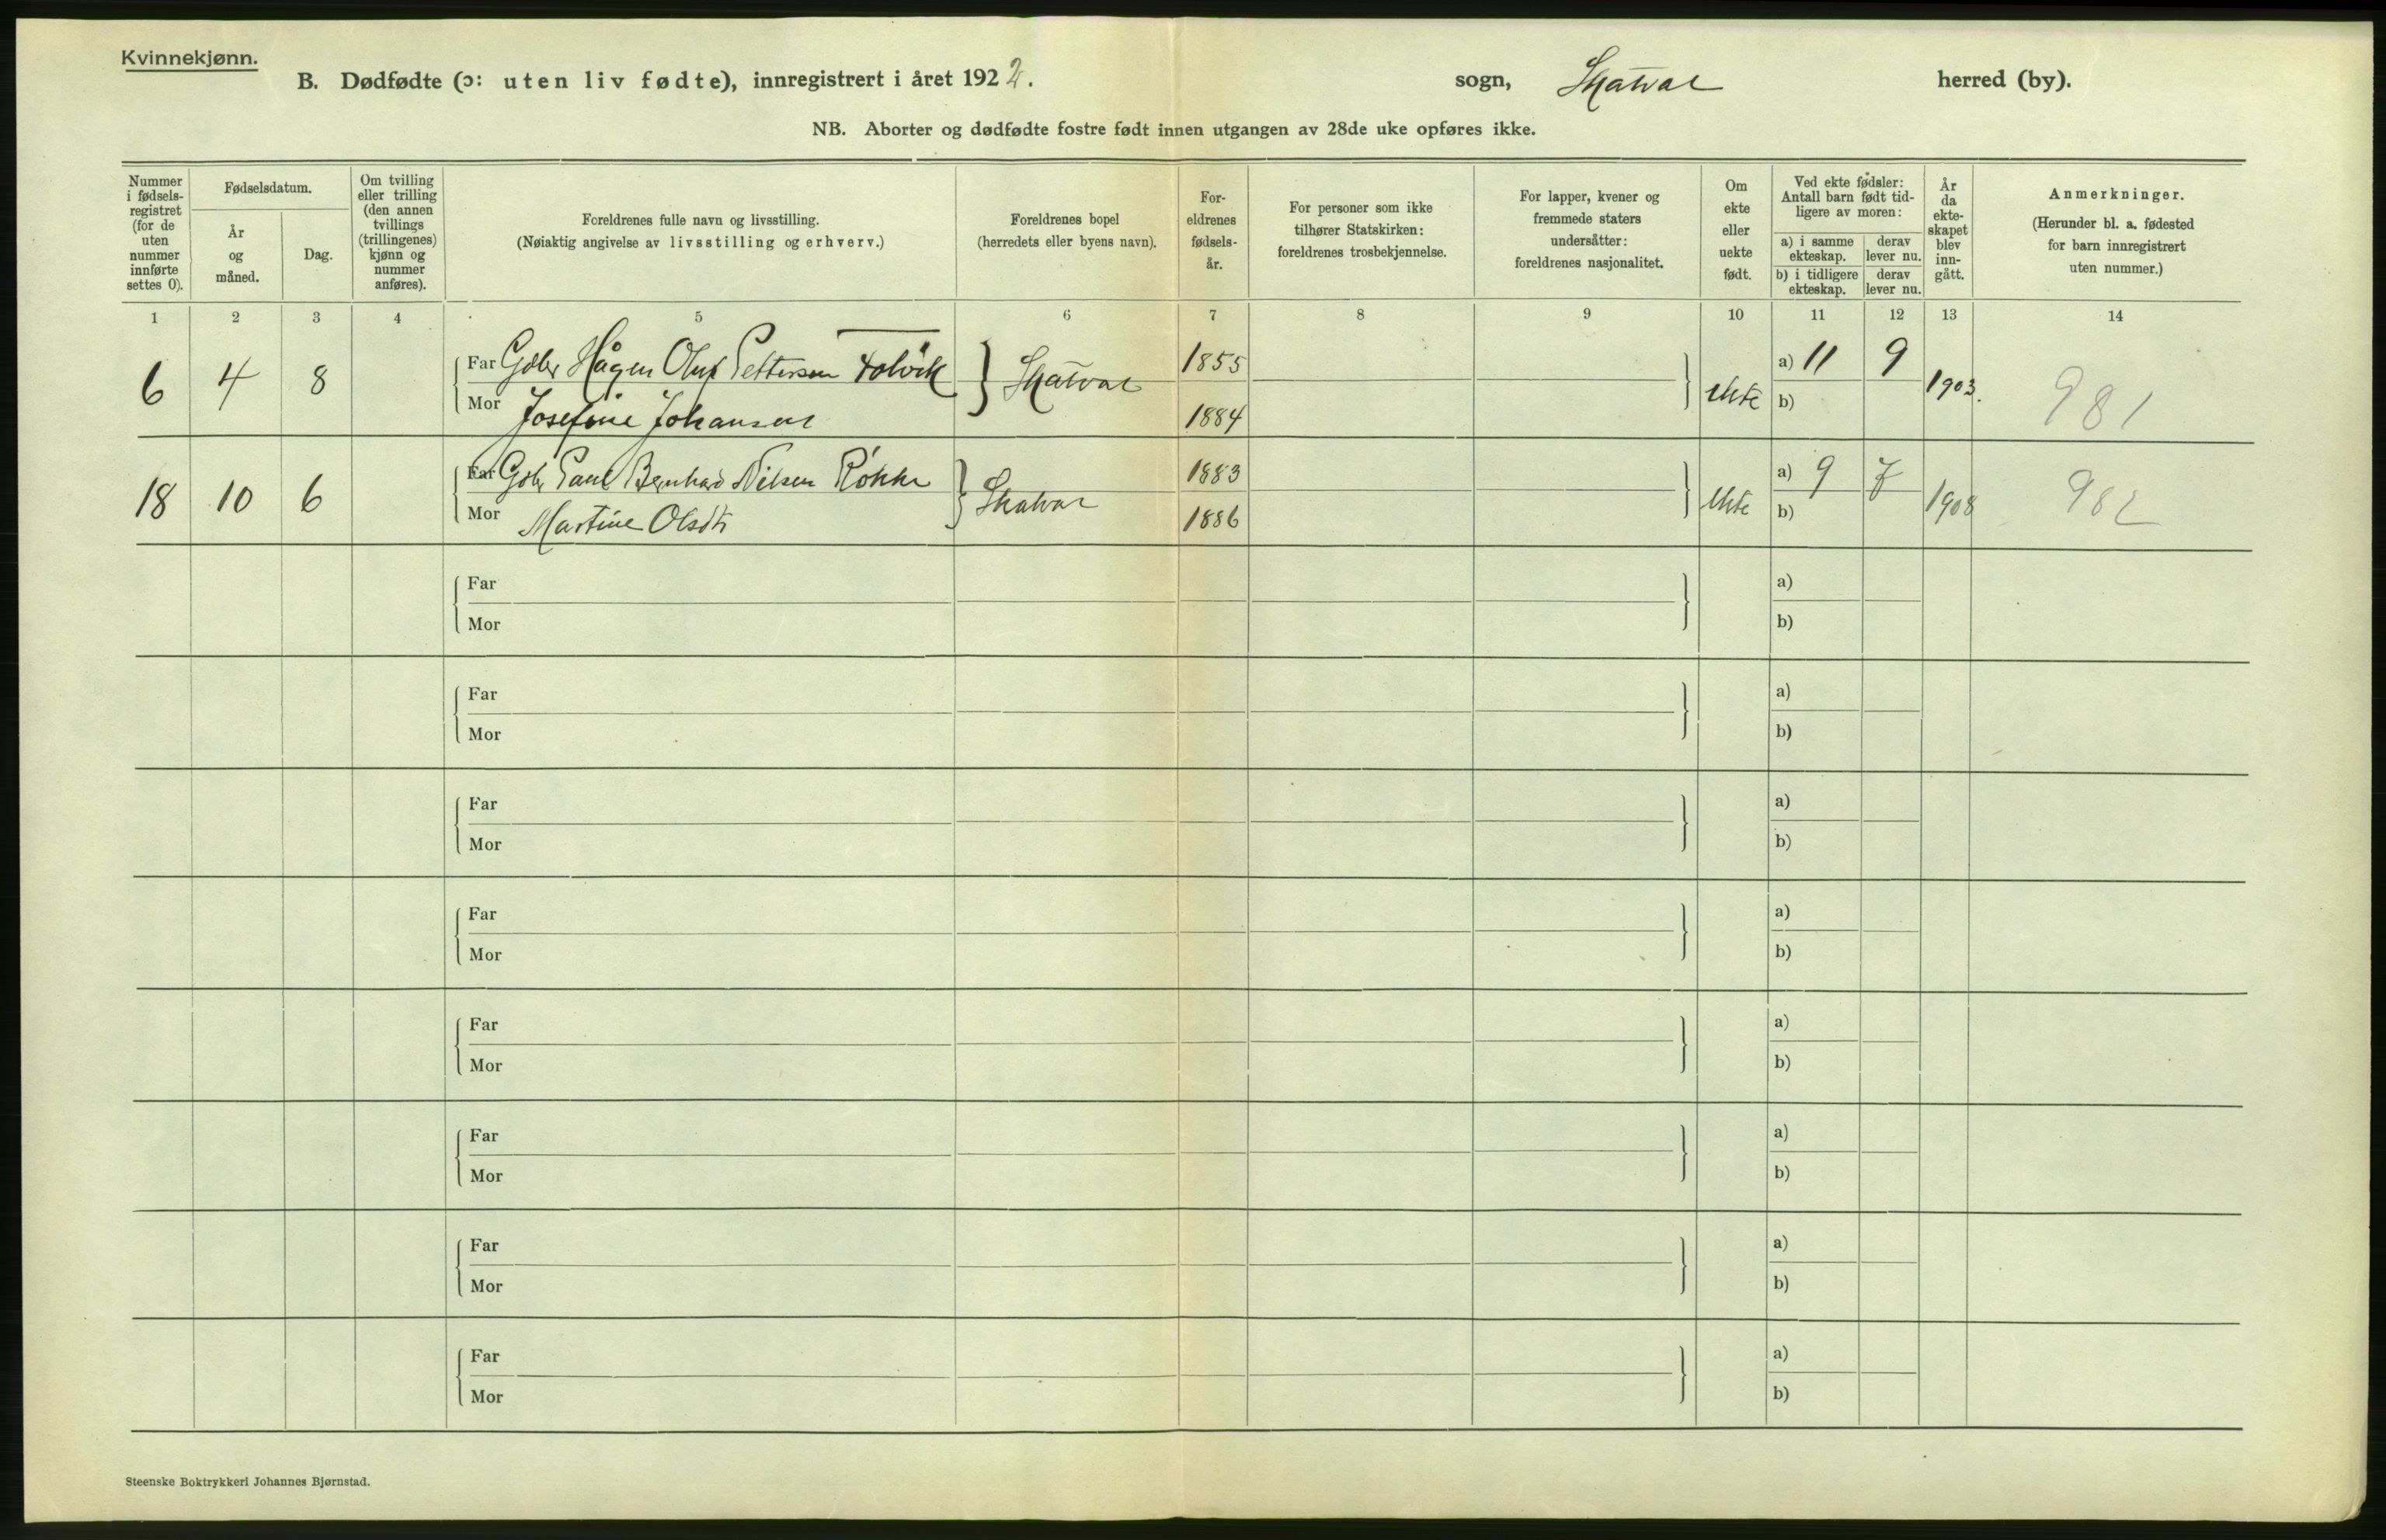 Kvinnekjønn.
B. Dødfødte (ɔ: uten liv fødte), innregistrert i året 1922. sogn, Skatval herred (by).
NB. Aborter og dødfødte fostre født innen utgangen av 28de uke opføres ikke.
Nummer i fødsels-registret (for de uten nummer innførte settes 0).
Fødselsdatum.
År og måned.
Dag.
Om tvilling eller trilling (den annen tvillings (trillingenes) kjønn og nummer anføres).
Foreldrenes fulle navn og livsstilling.
(Nøiaktig angivelse av livsstilling og erhverv.)
Foreldrenes bopel
(herredets eller byens navn).
For-eldrenes fødsels-år.
For personer som ikke tilhører Statskirken: foreldrenes trosbekjennelse.
For lapper, kvener og fremmede staters undersåtter: foreldrenes nasjonalitet.
Om ekte eller uekte født.
Ved ekte fødsler: Antall barn født tid-ligere av moren:
a) i samme ekteskap.
derav lever nu.
b) i tidligere ekteskap.
derav lever nu.
År da ekte-skapet blev inn-gått.
Anmerkninger.
(Herunder bl. a. fødested for barn innregistrert uten nummer.)
1 2 3 4 5 6 7 8 9 10 11 12 13 14
6 4 8 Far Gbr Hågen Oluf Pettersen Skatval 1855 ekte a) 11 9 1903. 981
Mor Josefine Johansen 1884 b)
18 10 6 Far Gbr Paul Bernhard Nilsen Røkke Skatval 1883 ekte a) 9 7 1908 982
Mor Martine Olsdtr 1886 b)
Far a)
Mor b)
Far a)
Mor b)
Far a)
Mor b)
Far a)
Mor b)
Far a)
Mor b)
Far a)
Mor b)
Far a)
Mor b)
Far a)
Mor b)
Steenske Boktrykkeri Johannes Bjørnstad.